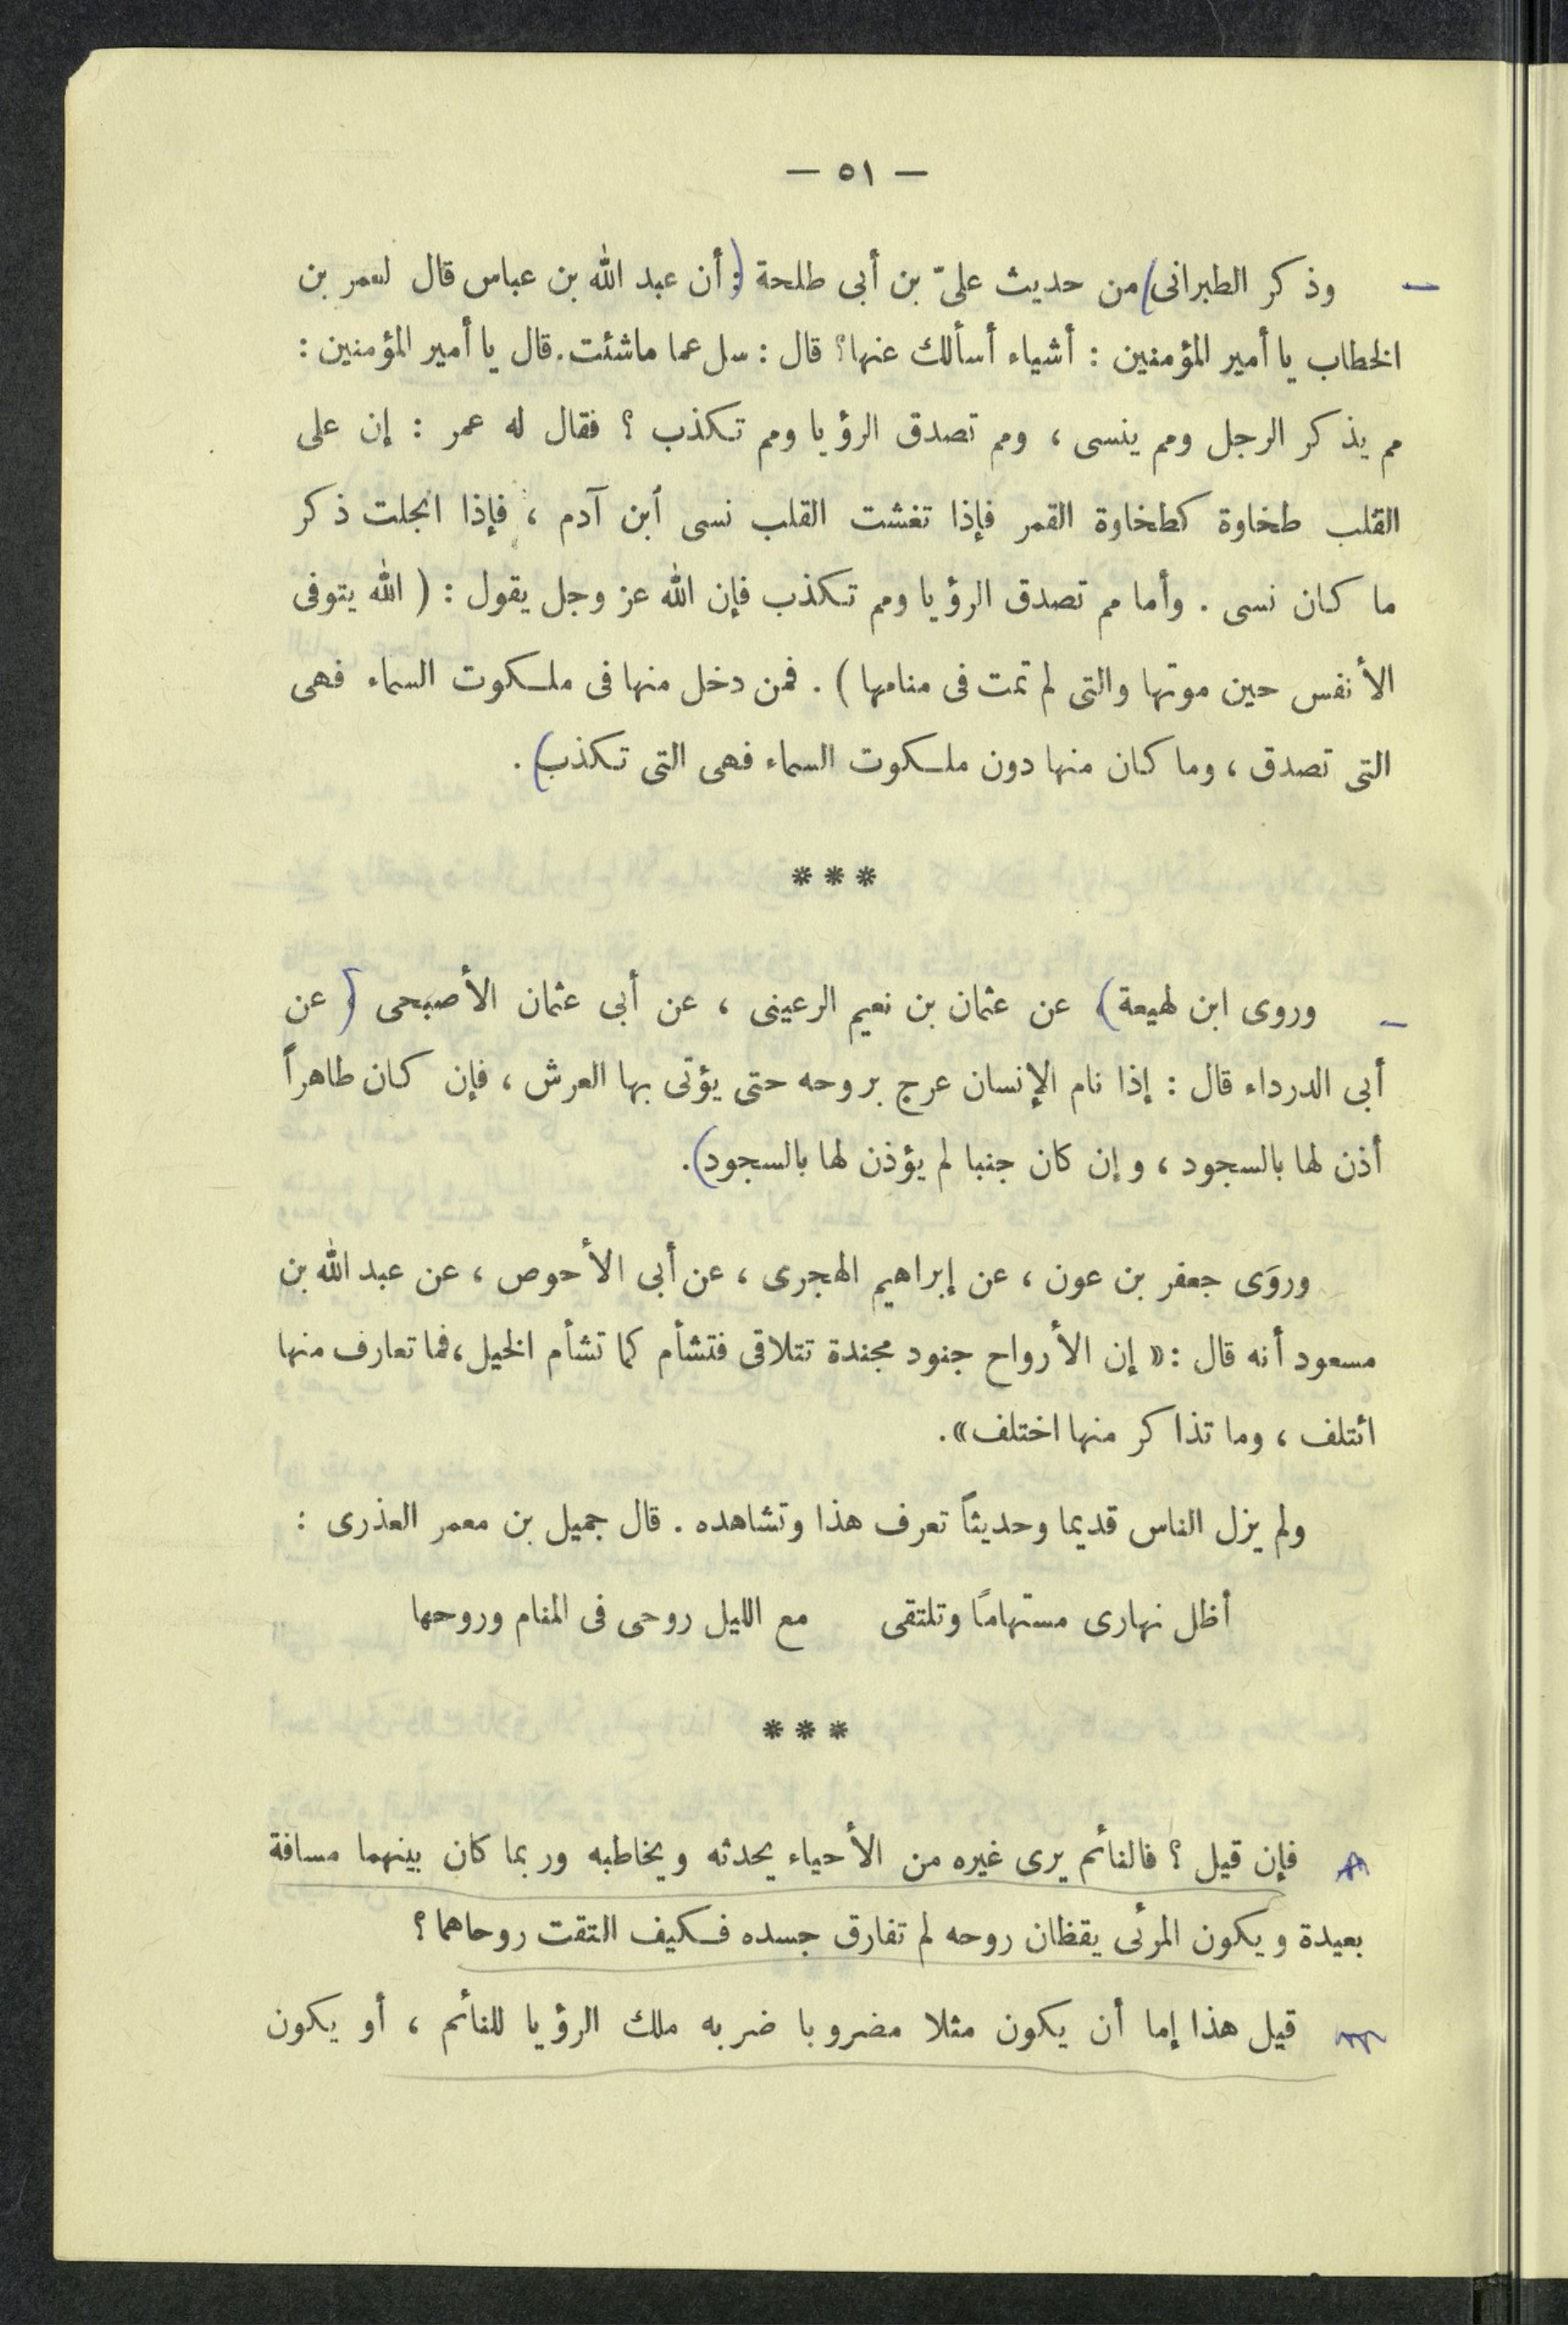 — ٥١ —
وذكر الطبرانى من حديث علىّ بن أبى طلحة : أن عبد الله بن عباس قال لعمر بن
الخطاب يا أمير المؤمنين : أشياء أسألك عنها؟ قال : سل عما ماشئت. قال يا أمير المؤمنين :
مم يذكر الرجل ومم ينسى ، ومم تصدق الرؤيا ومم تكذب ؟ فقال له عمر : إن على
القلب طخاوة كطخاوة القمر فإذا تغشت القلب نسى ابن آدم ، فإذا انجلت ذكر
ما كان نسى . وأما مم تصدق الرؤيا ومم تكذب فإن الله عز وجل يقول : ( الله يتوفى
الأنفس حين موتها والتى لم تمت فى منامها ) . فمن دخل منها فى ملكوت السماء فهى
التى تصدق ، وما كان منها دون ملكوت السماء فهى التى تكذب .
***
وروى ابن لهيعة ، عن عثمان بن نعيم الرعينى ، عن أبى عثمان الأصبحى ، عن
أبى الدرداء قال : إذا نام الإنسان عرج بروحه حتى يؤتى بها العرش ، فإن كان طاهراً
أذن لها بالسجود ، وإن كان جنبا لم يؤذن لها بالسجود .
وروَى جعفر بن عون ، عن إبراهيم الهجرى ، عن أبى الأحوص ، عن عبد الله بن
مسعود أنه قال : « إن الأرواح جنود مجندة تتلاقى فتشأم كما تشأم الخيل ، فما تعارف منها
ائتلف ، وما تذاكر منها اختلف » .
ولم يزل الناس قديما وحديثاً تعرف هذا وتشاهده . قال جميل بن معمر العذرى :
أظل نهارى مستهامًا وتلتقى مع الليل روحى فى المنام وروحها
***
فإن قيل ؟ فالنائم يرى غيره من الأحياء يحدثه ويخاطبه وربما كان بينهما مسافة
بعيدة ويكون المرئى يقظان روحه لم تفارق جسده فكيف التقت روحاهما ؟
قيل هذا إما أن يكون مثلا مضروبا ضربه ملك الرؤيا للنائم ، أو يكون